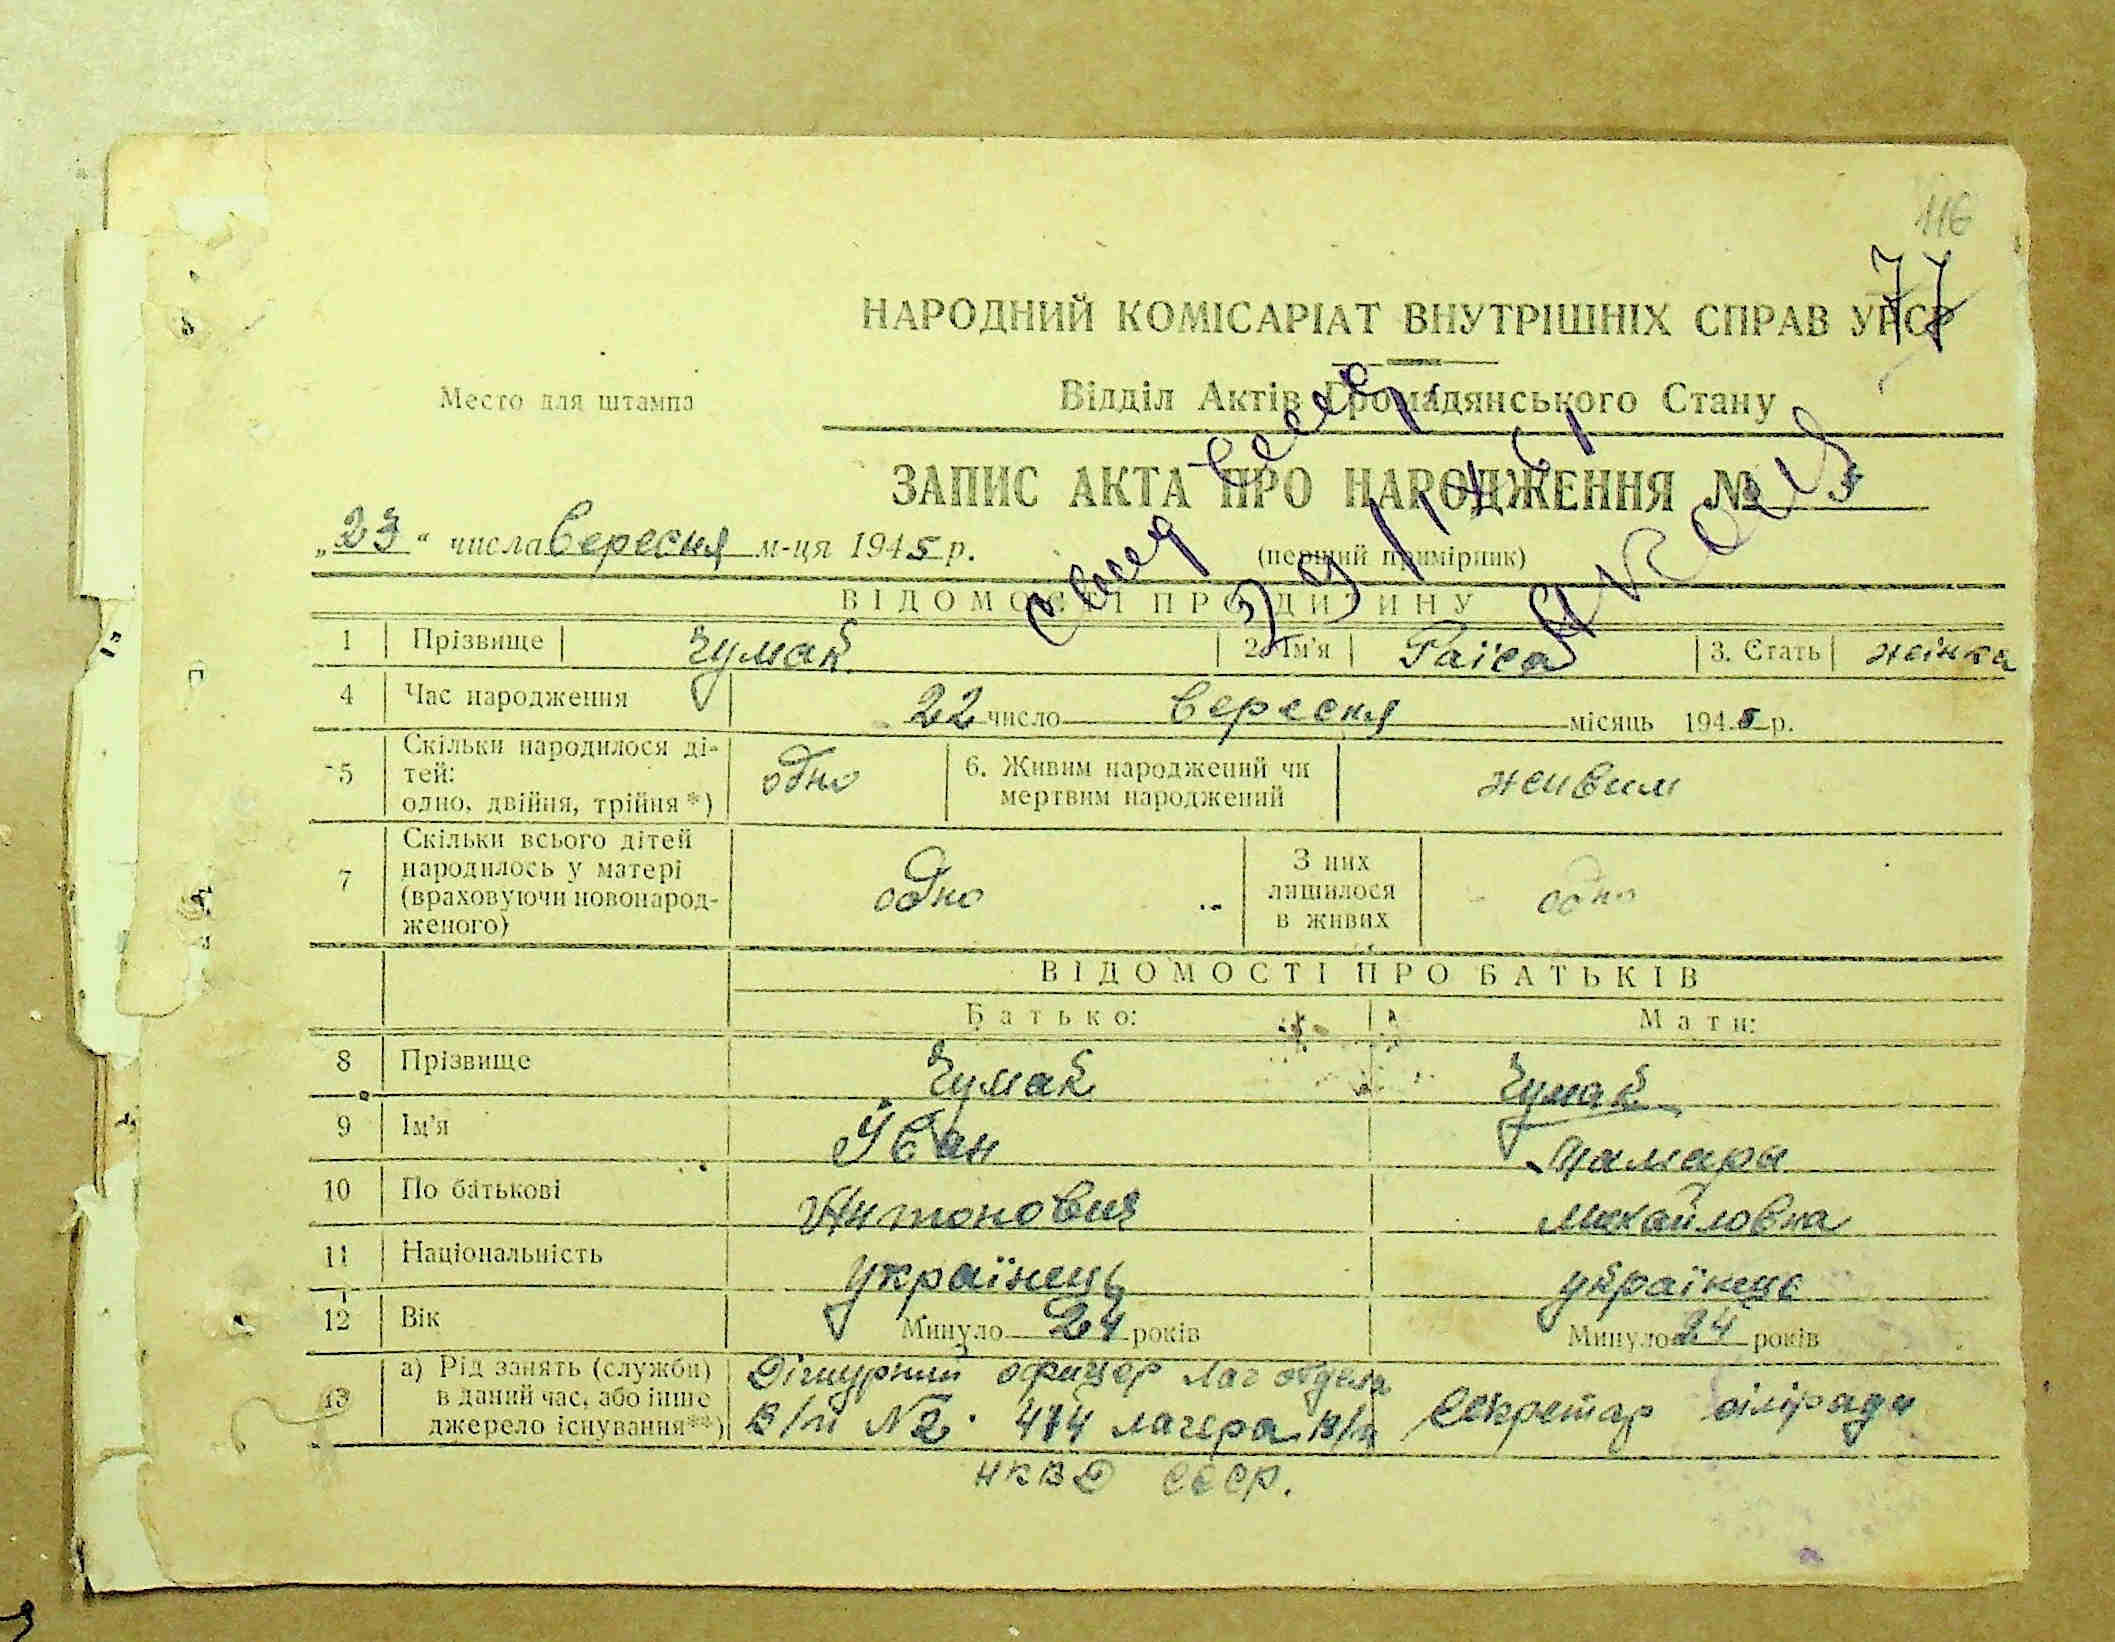 116
77
НАРОДНИЙ КОМІСАРІАТ ВНУТРІШНІХ СПРАВ УРСР
Место для штампа
Відділ Актів Громадянського Стану
ЗАПИС АКТА ПРО НАРОДЖЕННЯ №
„23“ числа вересня м-ця 1945 р.
(перший примірник)
ВІДОМОСТІ ПРО ДИТИНУ
1 Прізвище Чумак 2. Ім'я Раїса 3. Стать жінка
4 Час народження 22 число вересня місяць 1945 р.
5 Скільки народилося ді-
тей:
одно, двійня, трійня*) одно 6. Живим народжений чи
мертвим народжений живим
7 Скільки всього дітей
народилось у матері
(враховуючи новонарод-
женого) одно З них
лишилося
в живих одно
ВІДОМОСТІ ПРО БАТЬКІВ
Батько: Мати:
8 Прізвище Чумак Чумак
9 Ім'я Іван Тамара
10 По батькові Антонович Михайловна
11 Національність українець українець
12 Вік Минуло 24 років Минуло 24 років
13 а) Рід занять (служби)
в даний час, або інше
джерело існування**) Діжурний офицер Лаг отдела
В/п №2. 474 лагера В/п Секретар сілiради
НКВД СССР.